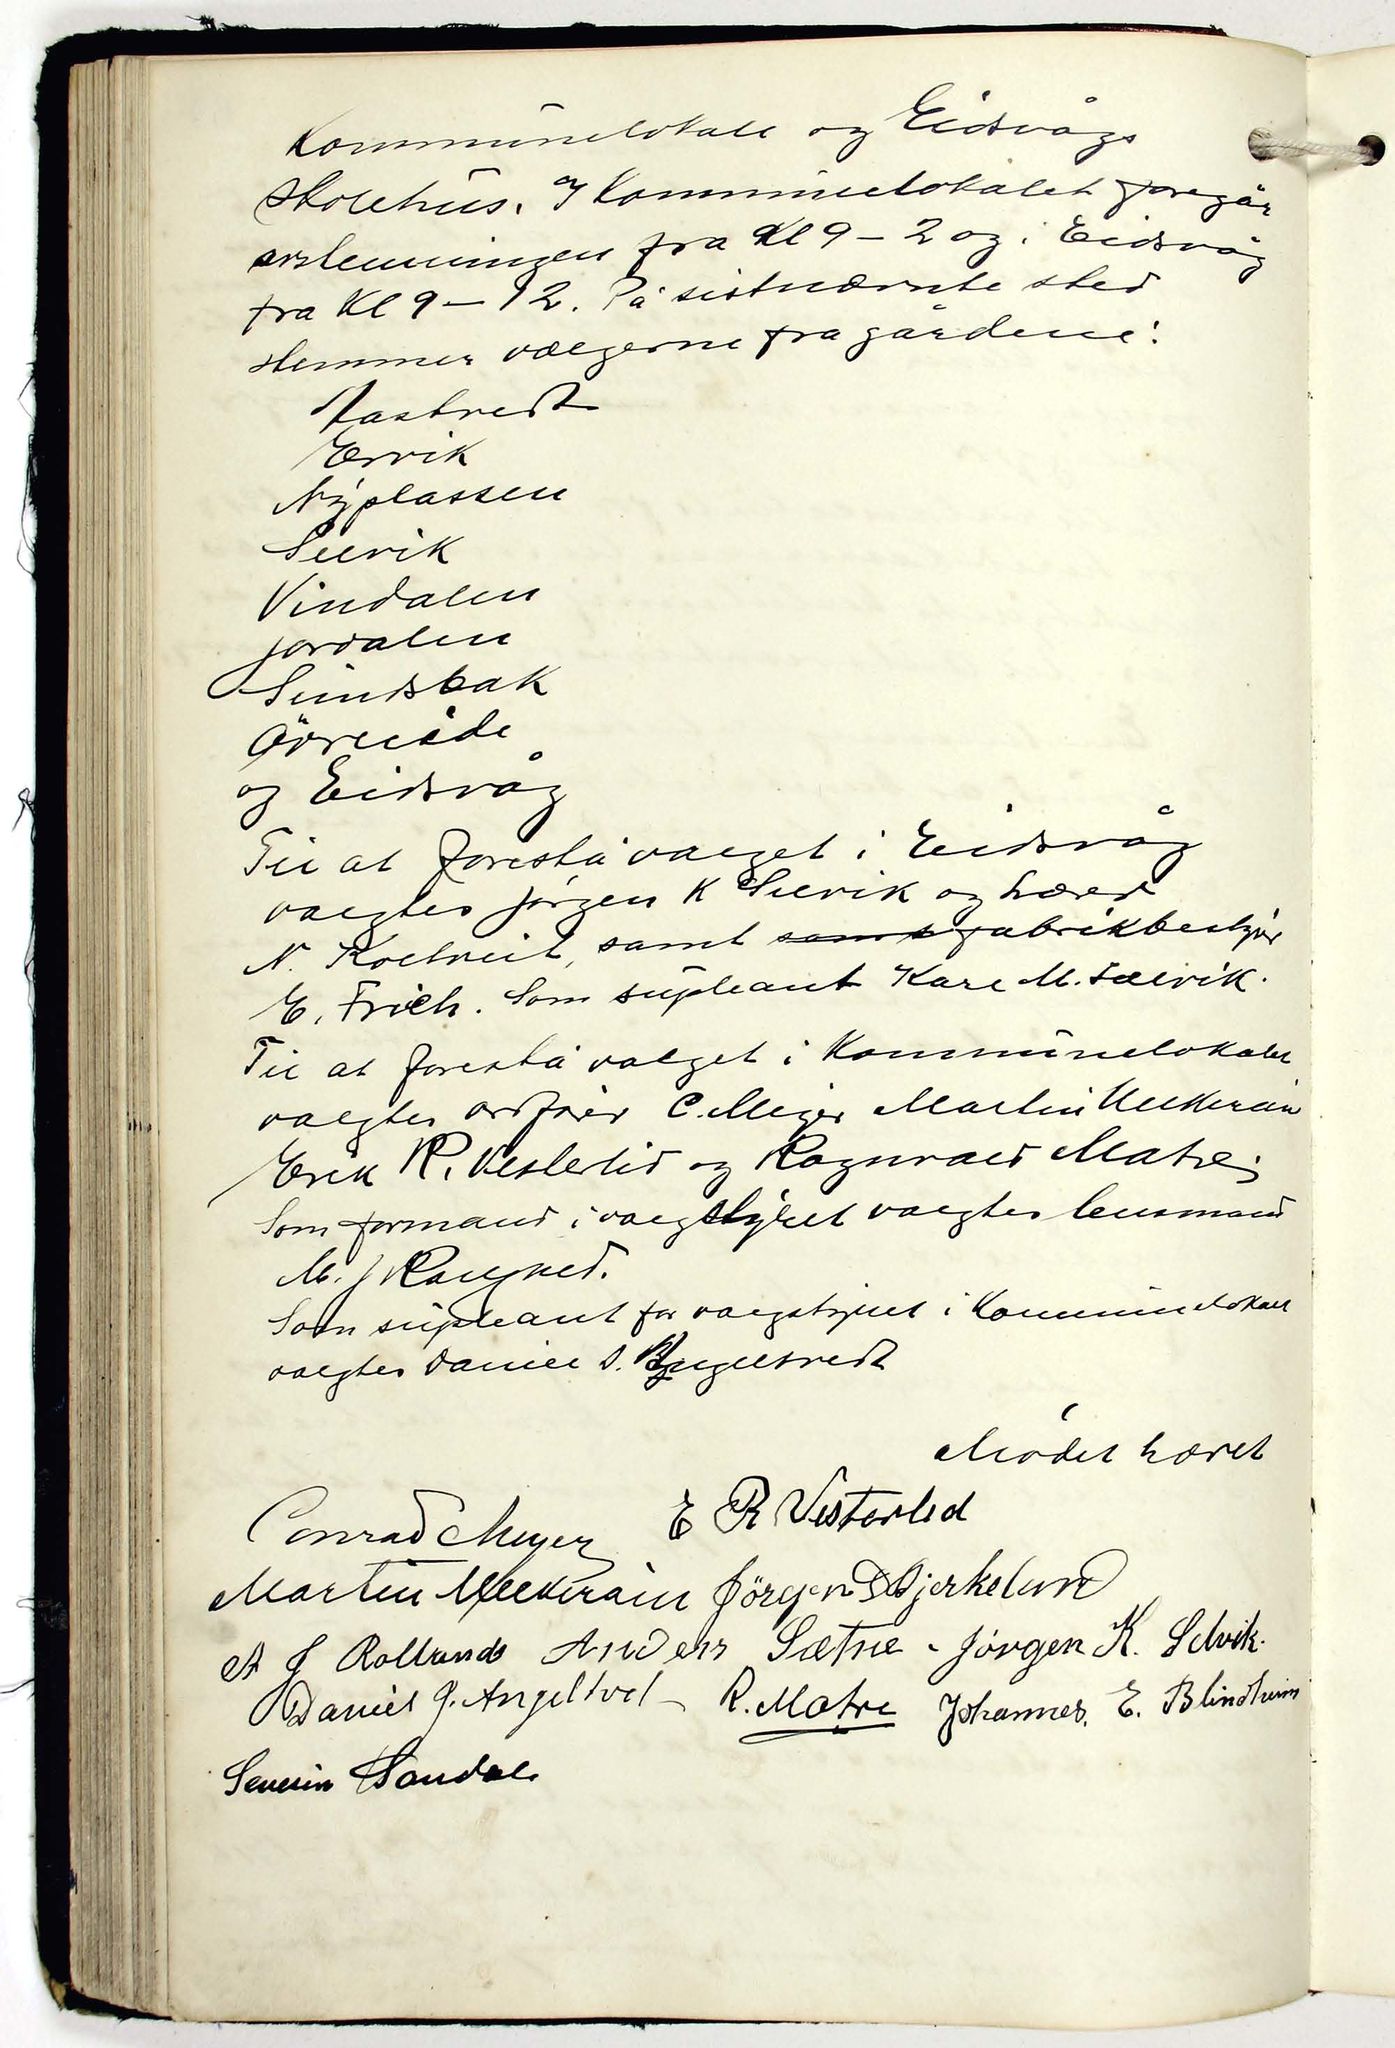 Kommunelokale og Eidsvågs
Skolehus. I Kommunelokalet foregår
avstemningen fra Kl 9 – 2 og i Eidsvåg
fra Kl 9 – 12. På sistnævnte sted
stemmer vælgerne fra gårdene:
Hastvedt
Ervik
Nyplassen
Selvik
Vindalen
Jordalen
Sundsbak
Øvreide
og Eidsvåg
Til at forestå valget i Eidsvåg
valgtes Jørgen K Selvik og Lærer
N. Koltveit, samt samt fabrikbestyr
E. Frich. Som supleant Karl M. Sælvik.
Til at forestå valget i Kommunelokalet
valgtes ordfører C. Meyer Martin
Erik R. Vesterlid og Ragnvald Matre;
Som formand i valgstyret valgtes lensmand
M. J
Som supleant for valgstyret i Kommunelokalet
valgtes Daniel J. Angeltvedt
Mødet hævet
Conrad Meyer E R Vesterlid
Martin Jörgen Bjerkelund
A J Rolland Anders Sætre - Jørgen K. Selvik.
Daniel J. Angeltvet - R. Matre Johannes. E. Blindheim
Severin Sandal